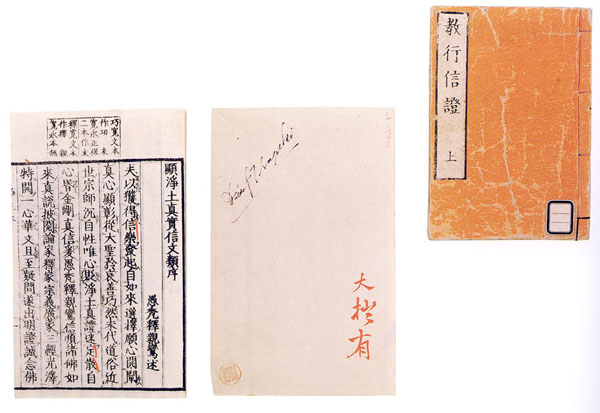 教行信證 上
巧寬文本
寬永正保
二本作未
釋寬文本
寬永本無
顯淨土真實信文類序
愚禿釋親鸞述
夫以獲得信樂發起自如來選擇願心開闡
真心顯彰從大聖矜哀善巧然末代道俗近
世宗師沉自性唯心貶淨土真證迷定散自
心昏金剛真信爰愚禿釋親鸞信順諸佛如
來真說披閱論家釋家宗義廣蒙三經光澤
特開一心華文且至疑問遂出明證誠念佛